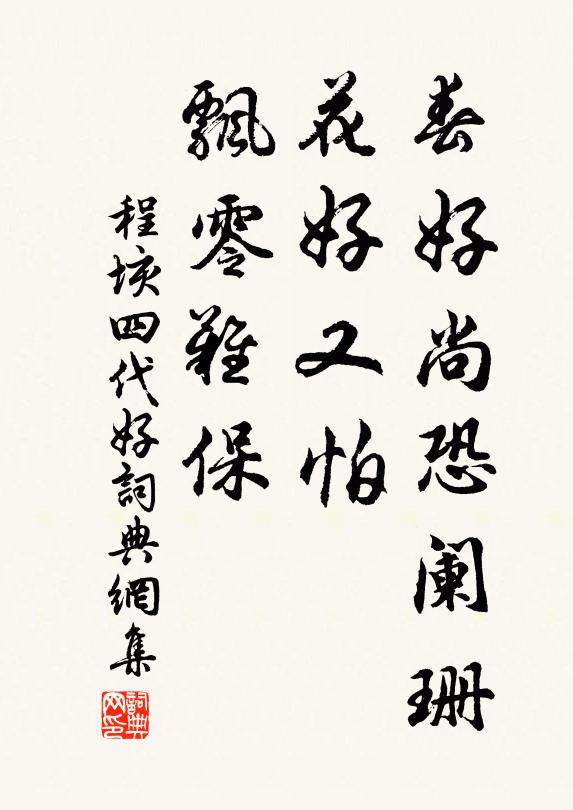 春好尚恐阑珊
花好又怕
飘零難保
程垓四代好詞典網集
詞典网印